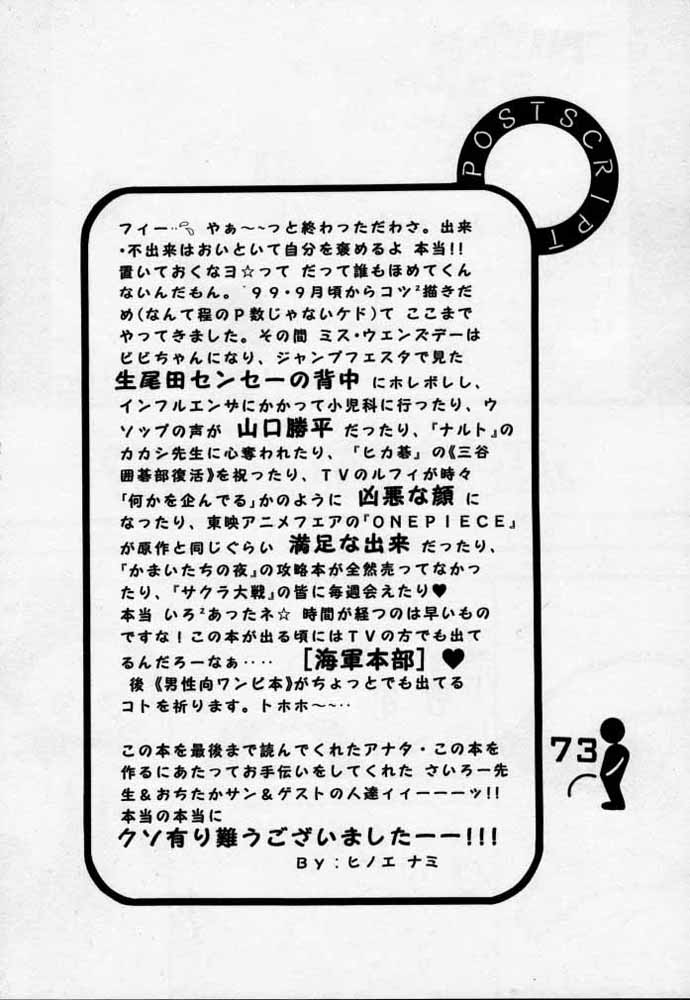 POSTSCRIPT
フィー‥ やぁ～～っと終わっただわさ。出来
・不出来はおいといて自分を褒めるよ 本当!!
置いておくなヨ☆って だって誰もほめてくん
ないんだもん。'99・9月頃からコツ²描きだ
め(なんて程のP数じゃないケド)て ここまで
やってきました。その間 ミス・ウェンズデーは
ビビちゃんになり、ジャンプフェスタで見た
生尾田センセーの背中 にホレボレし、
インフルエンザにかかって小児科に行ったり、ウ
ソップの声が 山口勝平 だったり、『ナルト』の
カカシ先生に心奪われたり、『ヒカ碁』の《三谷
囲碁部復活》を祝ったり、TVのルフィが時々
「何かを企んでる」かのように 凶悪な顔 に
なったり、東映アニメフェアの『ONEPIECE』
が原作と同じぐらい 満足な出来 だったり、
『かまいたちの夜』の攻略本が全然売ってなかっ
たり、『サクラ大戦』の皆に毎週会えたり♥
本当 いろ²あったネ☆ 時間が経つのは早いもの
ですな！この本が出る頃にはTVの方でも出て
るんだろーなぁ‥‥ [海軍本部]♥
後《男性向ワンピ本》がちょっとでも出てる
コトを祈ります。トホホ～～‥
この本を最後まで読んでくれたアナタ・この本を
作るにあたってお手伝いをしてくれた さいろー先
生＆おちたかサン＆ゲストの人達ィィーーーッ!!
本当の本当に
クソ有り難うございましたーー!!!
By：ヒノエ ナミ
73